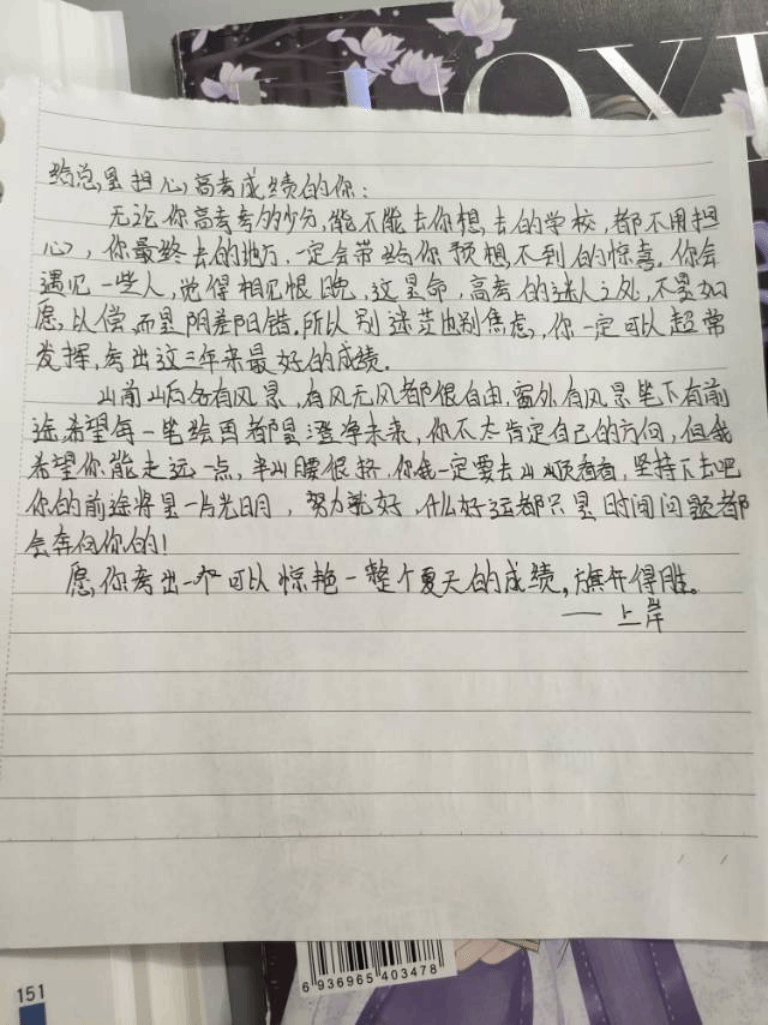 LOVE
给总是担心高考成绩的你:
无论你高考考的少分,能不能去你想去的学校,都不用担
心,你最终去的地方,一定会带给你预想不到的惊喜.你会
遇见一些人,觉得相见恨晚,这是命,高考的迷人之处,不是如
愿以偿,而是阴差阳错.所以别迷茫也别焦虑,你一定可以超常
发挥,考出这三年来最好的成绩.
山前山后各有风景,有风无风都很自由,窗外有风景笔下有前
途,希望每一笔绘画都是澄净未来,你不太肯定自己的方向,但我
希望你能走远一点,半山腰很挤,你我一定要去山顺看看,坚持下去吧
你的前途将是一片光明,努力就好,什么好运都只是时间问题都
会奔向你的!
愿你考出一个可以惊艳一整个夏天的成绩,旗开得胜。
——上岸
6 936965 403478
151